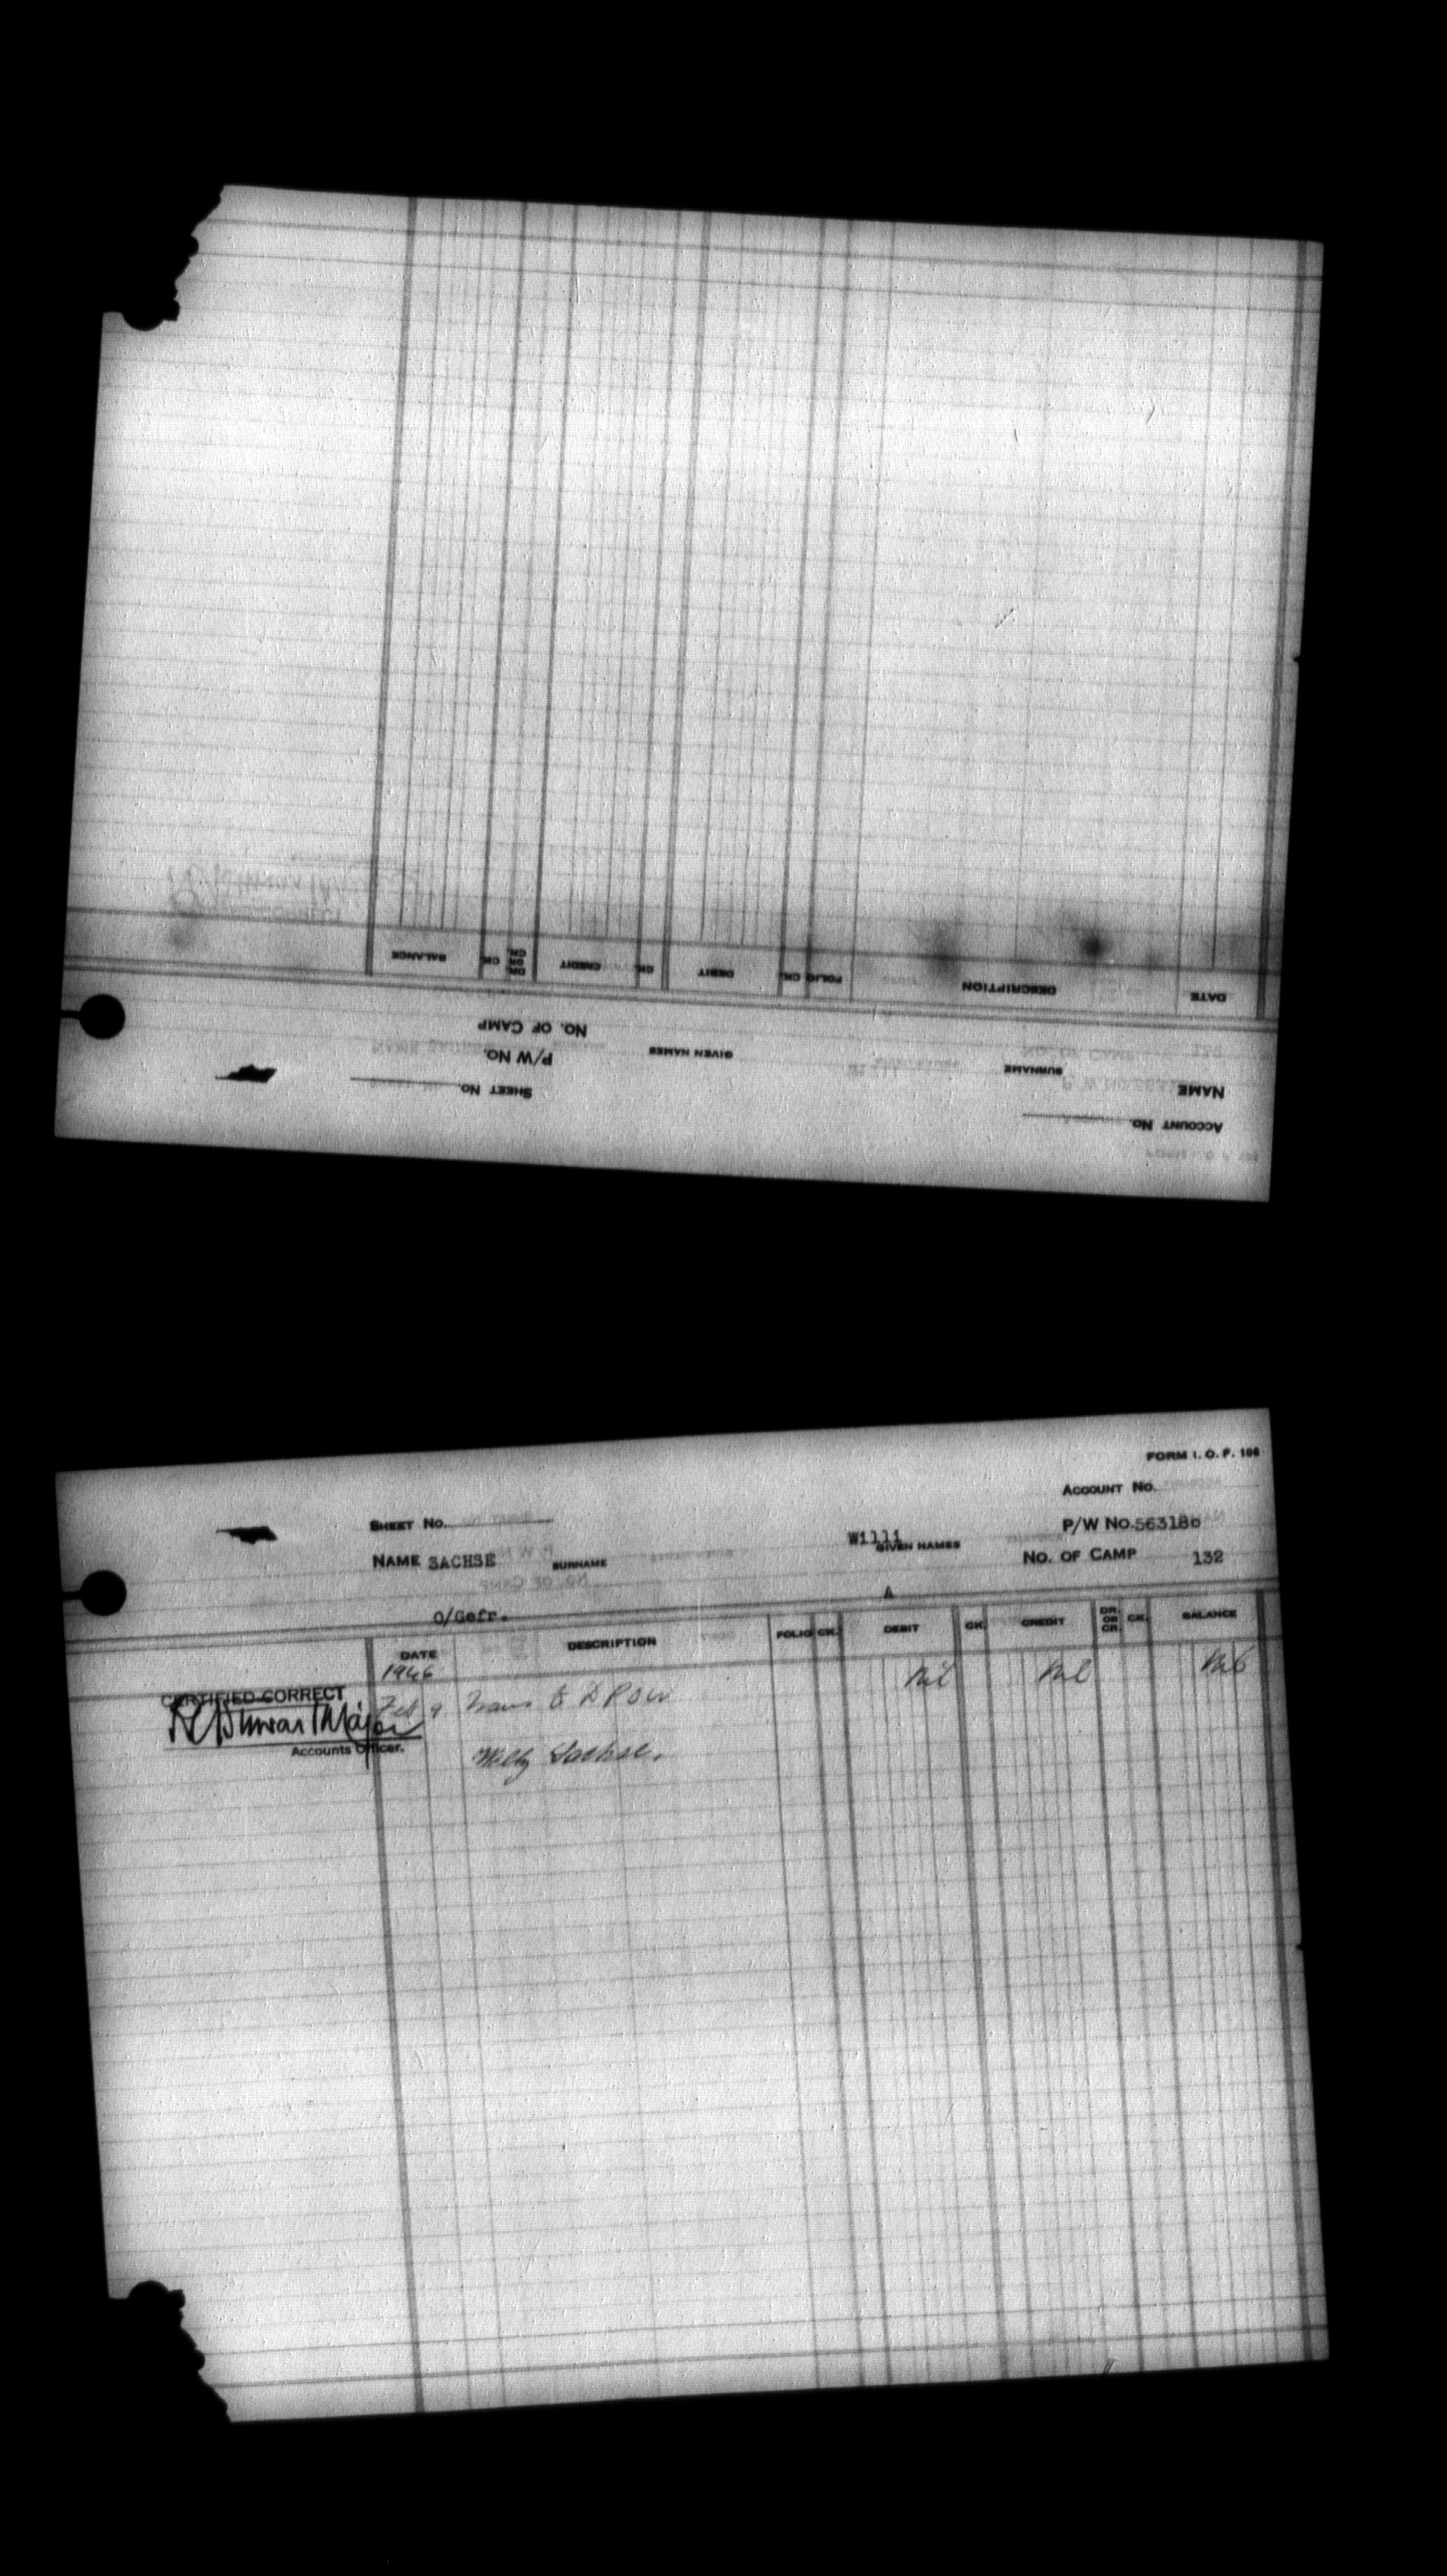 DATE
DESCRIPTION
FOLIO CK.
DEBIT
CK.
CREDIT
DR. OR CR.
CK.
BALANCE
ACCOUNT No.
NAME
SURNAME
GIVEN NAMES
SHEET No.
P/W No.
No. OF CAMP
FORM I. O. P. 106
ACCOUNT No.
SHEET No.
P/W No. 563186
NAME SACHSE SURNAME
Willi GIVEN NAMES
No. OF CAMP 132
A
O/Gefr.
DATE DESCRIPTION FOLIO CK. DEBIT CK. CREDIT DR. OR CR. CK. BALANCE
1946
Feb 9 Trans to D P O W Nil Nil Nil
CERTIFIED CORRECT
Major
Accounts Officer.
Willy Sachse.